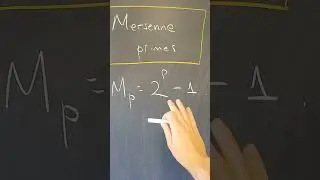 Mersenne
primes
Mₚ = 2ᵖ - 1